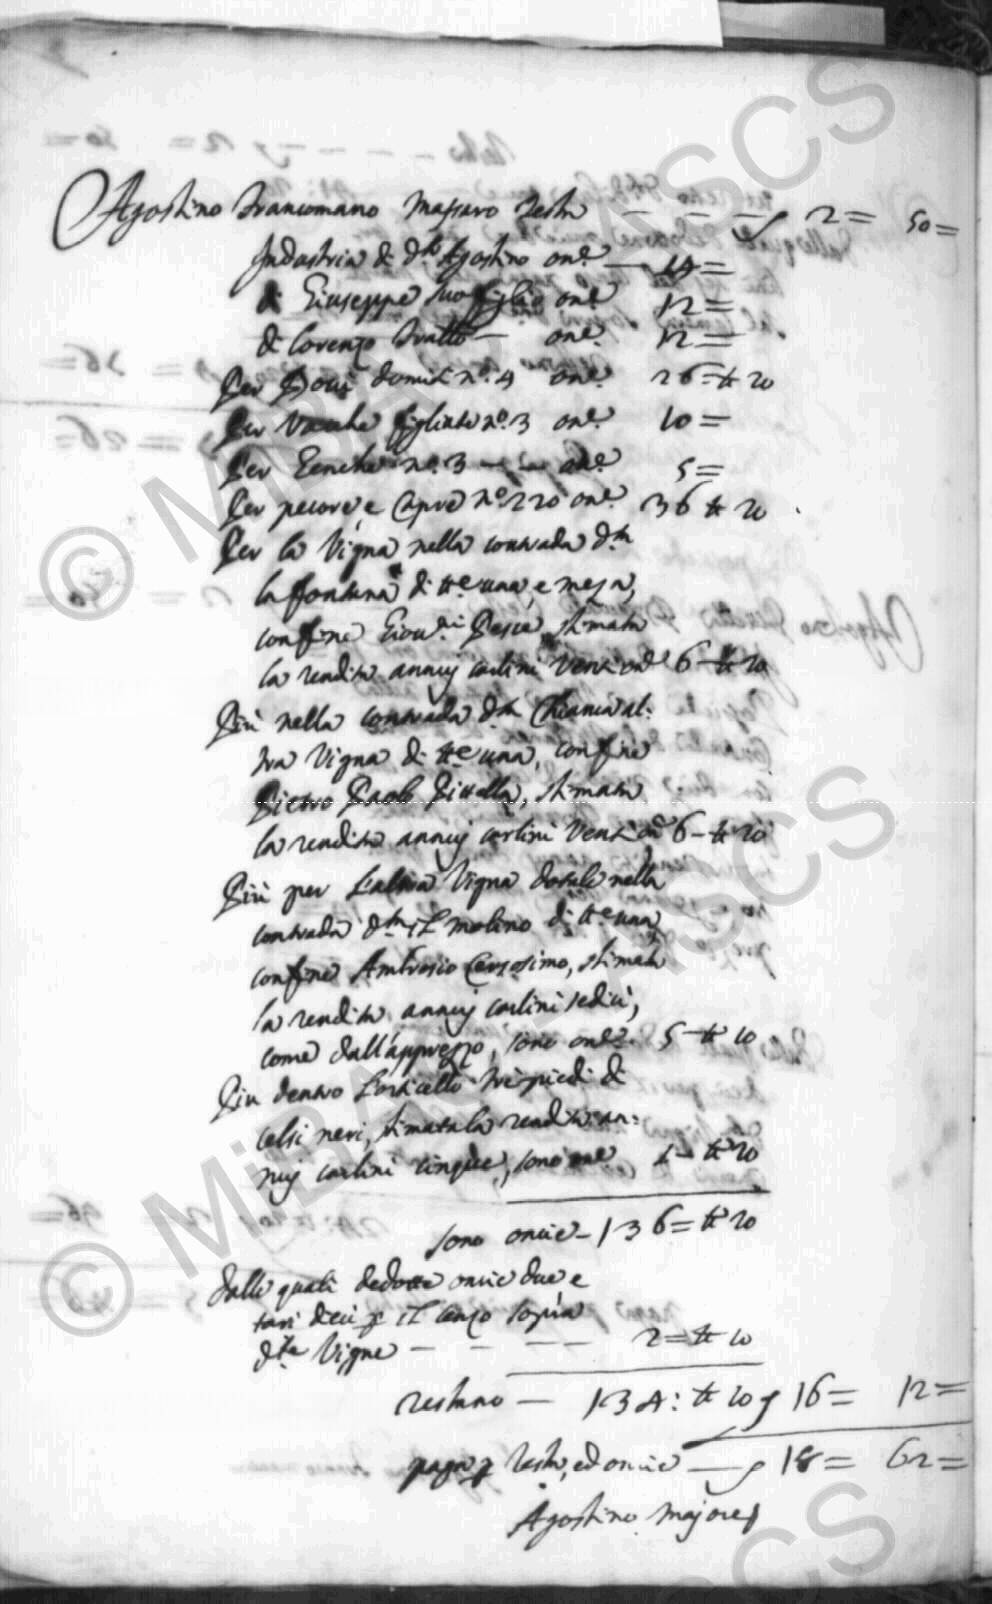 Agostino Francomano Massaro Testa — — — 2 = 50 =
Industria di dto Agostino onze — 14 =
di Giuseppe suo figlio onze 12 =
di Lorenzo fratto — onze 12 =
Per Bovi domiti no. 4 onze 26 = tt 20
Per Vacche figliate no. 3 onze 10 =
Per Genche no. 3 — — onze 5 =
Per pecore, e Capre no. 220 onze 36 tt 20
Per la Vigna nella contrada dta
la fontana di tte una, e meza,
confine Giovni Pesce, stimata
la rendita annuj carlini venti onze 6 - tt 20
Più nella contrada dta Chianca al:
tra Vigna di tte una, confine
Pietro Paolo Pittella, stimata
la rendita annuj carlini venti onze 6 - tt 20
Più per l'altra Vigna dotale nella
contrada dta il molino di tte una
confine Ambrosio Cersosimo, stimata
la rendita annuj carlini sedici,
come dall'apprezzo, sono onze 5 - tt 10
Piu dentro l'orticello tre piedi di
celsi neri, stimata la rendita an:
nuj carlini cinque, sono onze 1 - tt 20
sono oncie - 136 = tt 20
dalle quali dedotte oncie due e
tarì dieci p il censo sopra
dte Vigne — — — — 2 = tt 10
restano — 134: tt 10 16 = 12 =
paga p testa, ed oncie — 18 = 62 =
Agostino majores